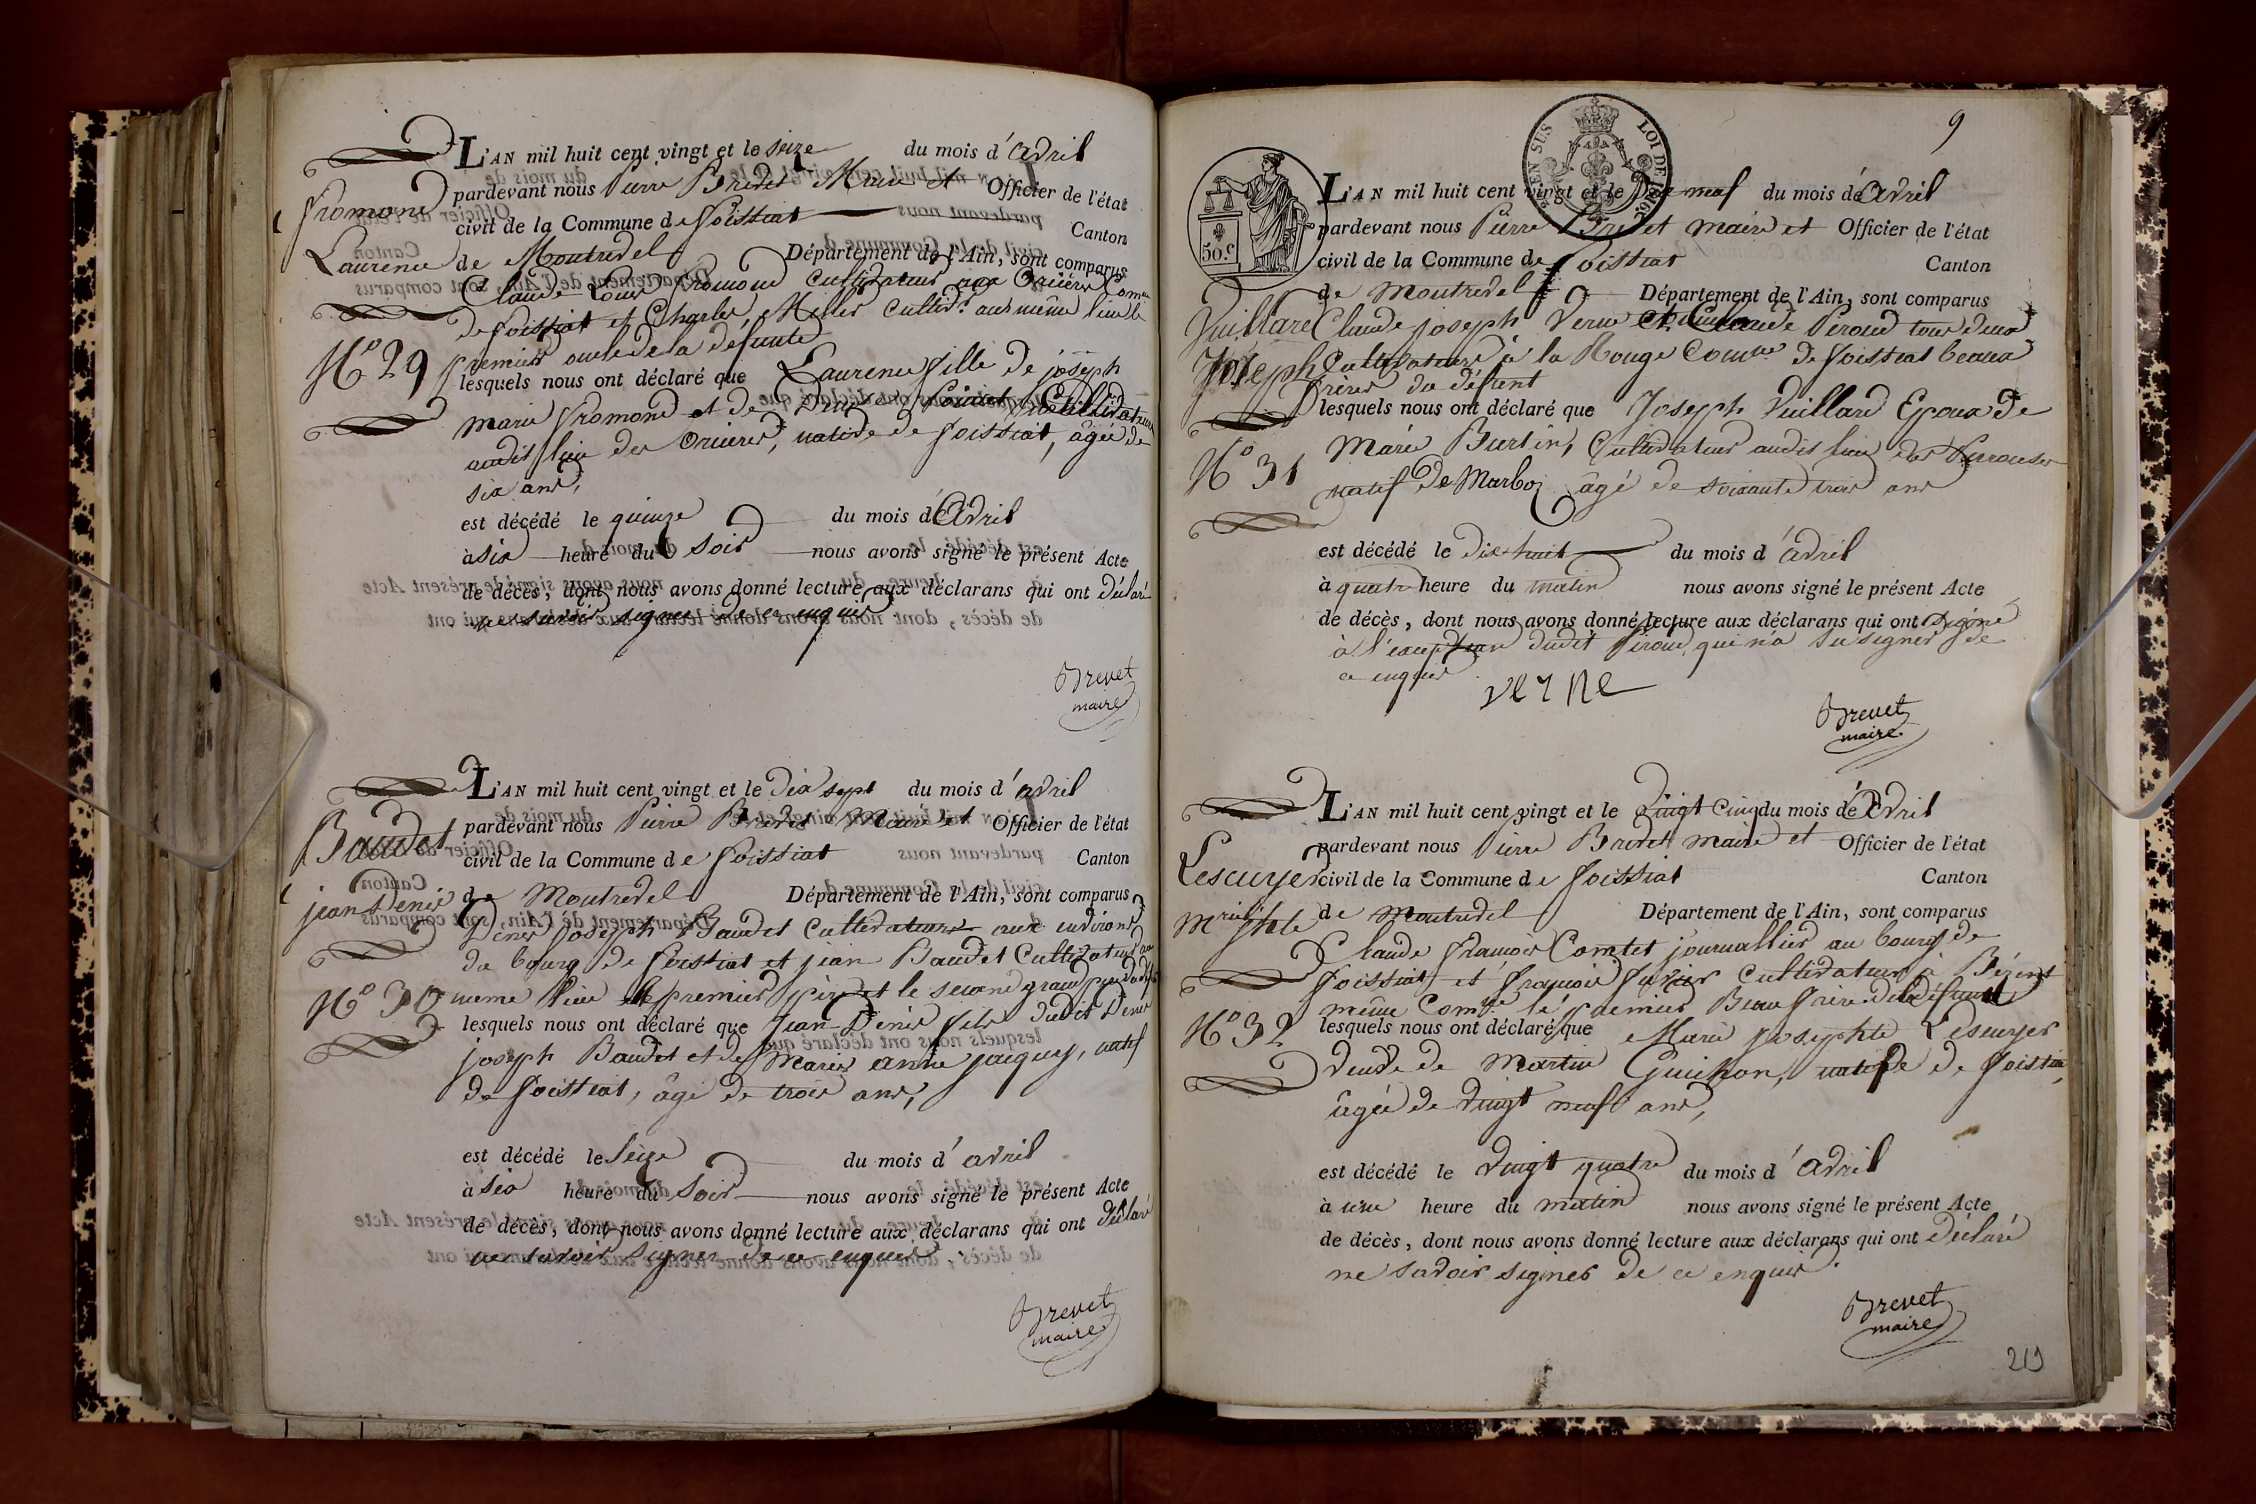 L'AN mil huit cent vingt et le seize du mois d'avril
pardevant nous Pierre Brevet Maire et Officier de l'état
civil de la Commune de foissiat Canton
de Montrevel Département de l'Ain, sont comparus
Claude Louis fromond Cultivateur aux Orières Comne
de foissiat et Charles Cultivr. au même lieu le
premier oncle de la défunte
lesquels nous ont déclaré que Laurence fille de joseph
marie fromond et de Cultivateurs
audit lieu des Orières, native de foissiat, âgée de
six ans,
est décédé le quinze du mois d'Avril
à six heure du soir nous avons signé le présent Acte
de décès, dont nous avons donné lecture aux déclarans qui ont déclaré
ne savoir signer de ce enquis
Brevet
maire
fromond
Laurence
No 29
L'AN mil huit cent vingt et le dix sept du mois d'avril
pardevant nous Pierre Brevet Maire et Officier de l'état
civil de la Commune de foissiat Canton
de Montrevel Département de l'Ain, sont comparus
Denis joseph Baudet Cultivateur aux environs
du bourg de foissiat et jean Baudet Cultivateur au
meme lieu le premier père et le second grand père dudefunt
lesquels nous ont déclaré que Jean Denis fils dudit Denis
joseph Baudet et de Marie anne jacquet, natif
de foissiat, âgé de trois ans,
est décédé le Seize du mois d'avril
à six heure du soir nous avons signé le présent Acte
de décès, dont nous avons donné lecture aux déclarans qui ont déclaré
ne savoir signer de ce enquis
Brevet
maire
Baudet
jean Denis
No 30
9
EN SUS
LOI DE 1816
50.c
L'AN mil huit cent vingt et le dix neuf du mois d'Avril
pardevant nous Pierre Brevet maire et Officier de l'état
civil de la Commune de foissiat Canton
de Montrevel Département de l'Ain, sont comparus
Claude joseph Verne et Claude Peroud tous deux
Cultivateurs à la Rouge Comne de foissiat beaux
frères du défunt
lesquels nous ont déclaré que Joseph Vuillard Epoux de
Marie Burtin, Cultivateur audit lieu des
natif de Marboz âgé de soixante trois ans
est décédé le dix huit du mois d'avril
à quatre heure du matin nous avons signé le présent Acte
de décès, dont nous avons donné lecture aux déclarans qui ont signé
à l'exception dudit Péroud qui n'a su signer de
ce enquis
verne
Brevet
maire
Vuillard
Joseph
No 31
L'AN mil huit cent vingt et le vingt cinq du mois d'Avril
pardevant nous Pierre Brevet maire et Officier de l'état
civil de la Commune de foissiat Canton
de Montrevel Département de l'Ain, sont comparus
Claude françois Comtet journallier au bourg de
foissiat et françois Cultivateur à
même Comne le premier Beau frère de la défunte
lesquels nous ont déclaré que Marie josephte Lescuyer
veuve de Martin Guichon, native de foissiat,
âgée de vingt neuf ans,
est décédé le vingt quatre du mois d'avril
à une heure du matin nous avons signé le présent Acte
de décès, dont nous avons donné lecture aux déclarans qui ont déclaré
ne savoir signer de ce enquis.
Brevet
maire
Lescuyer
Mrie jphte
No 32
219